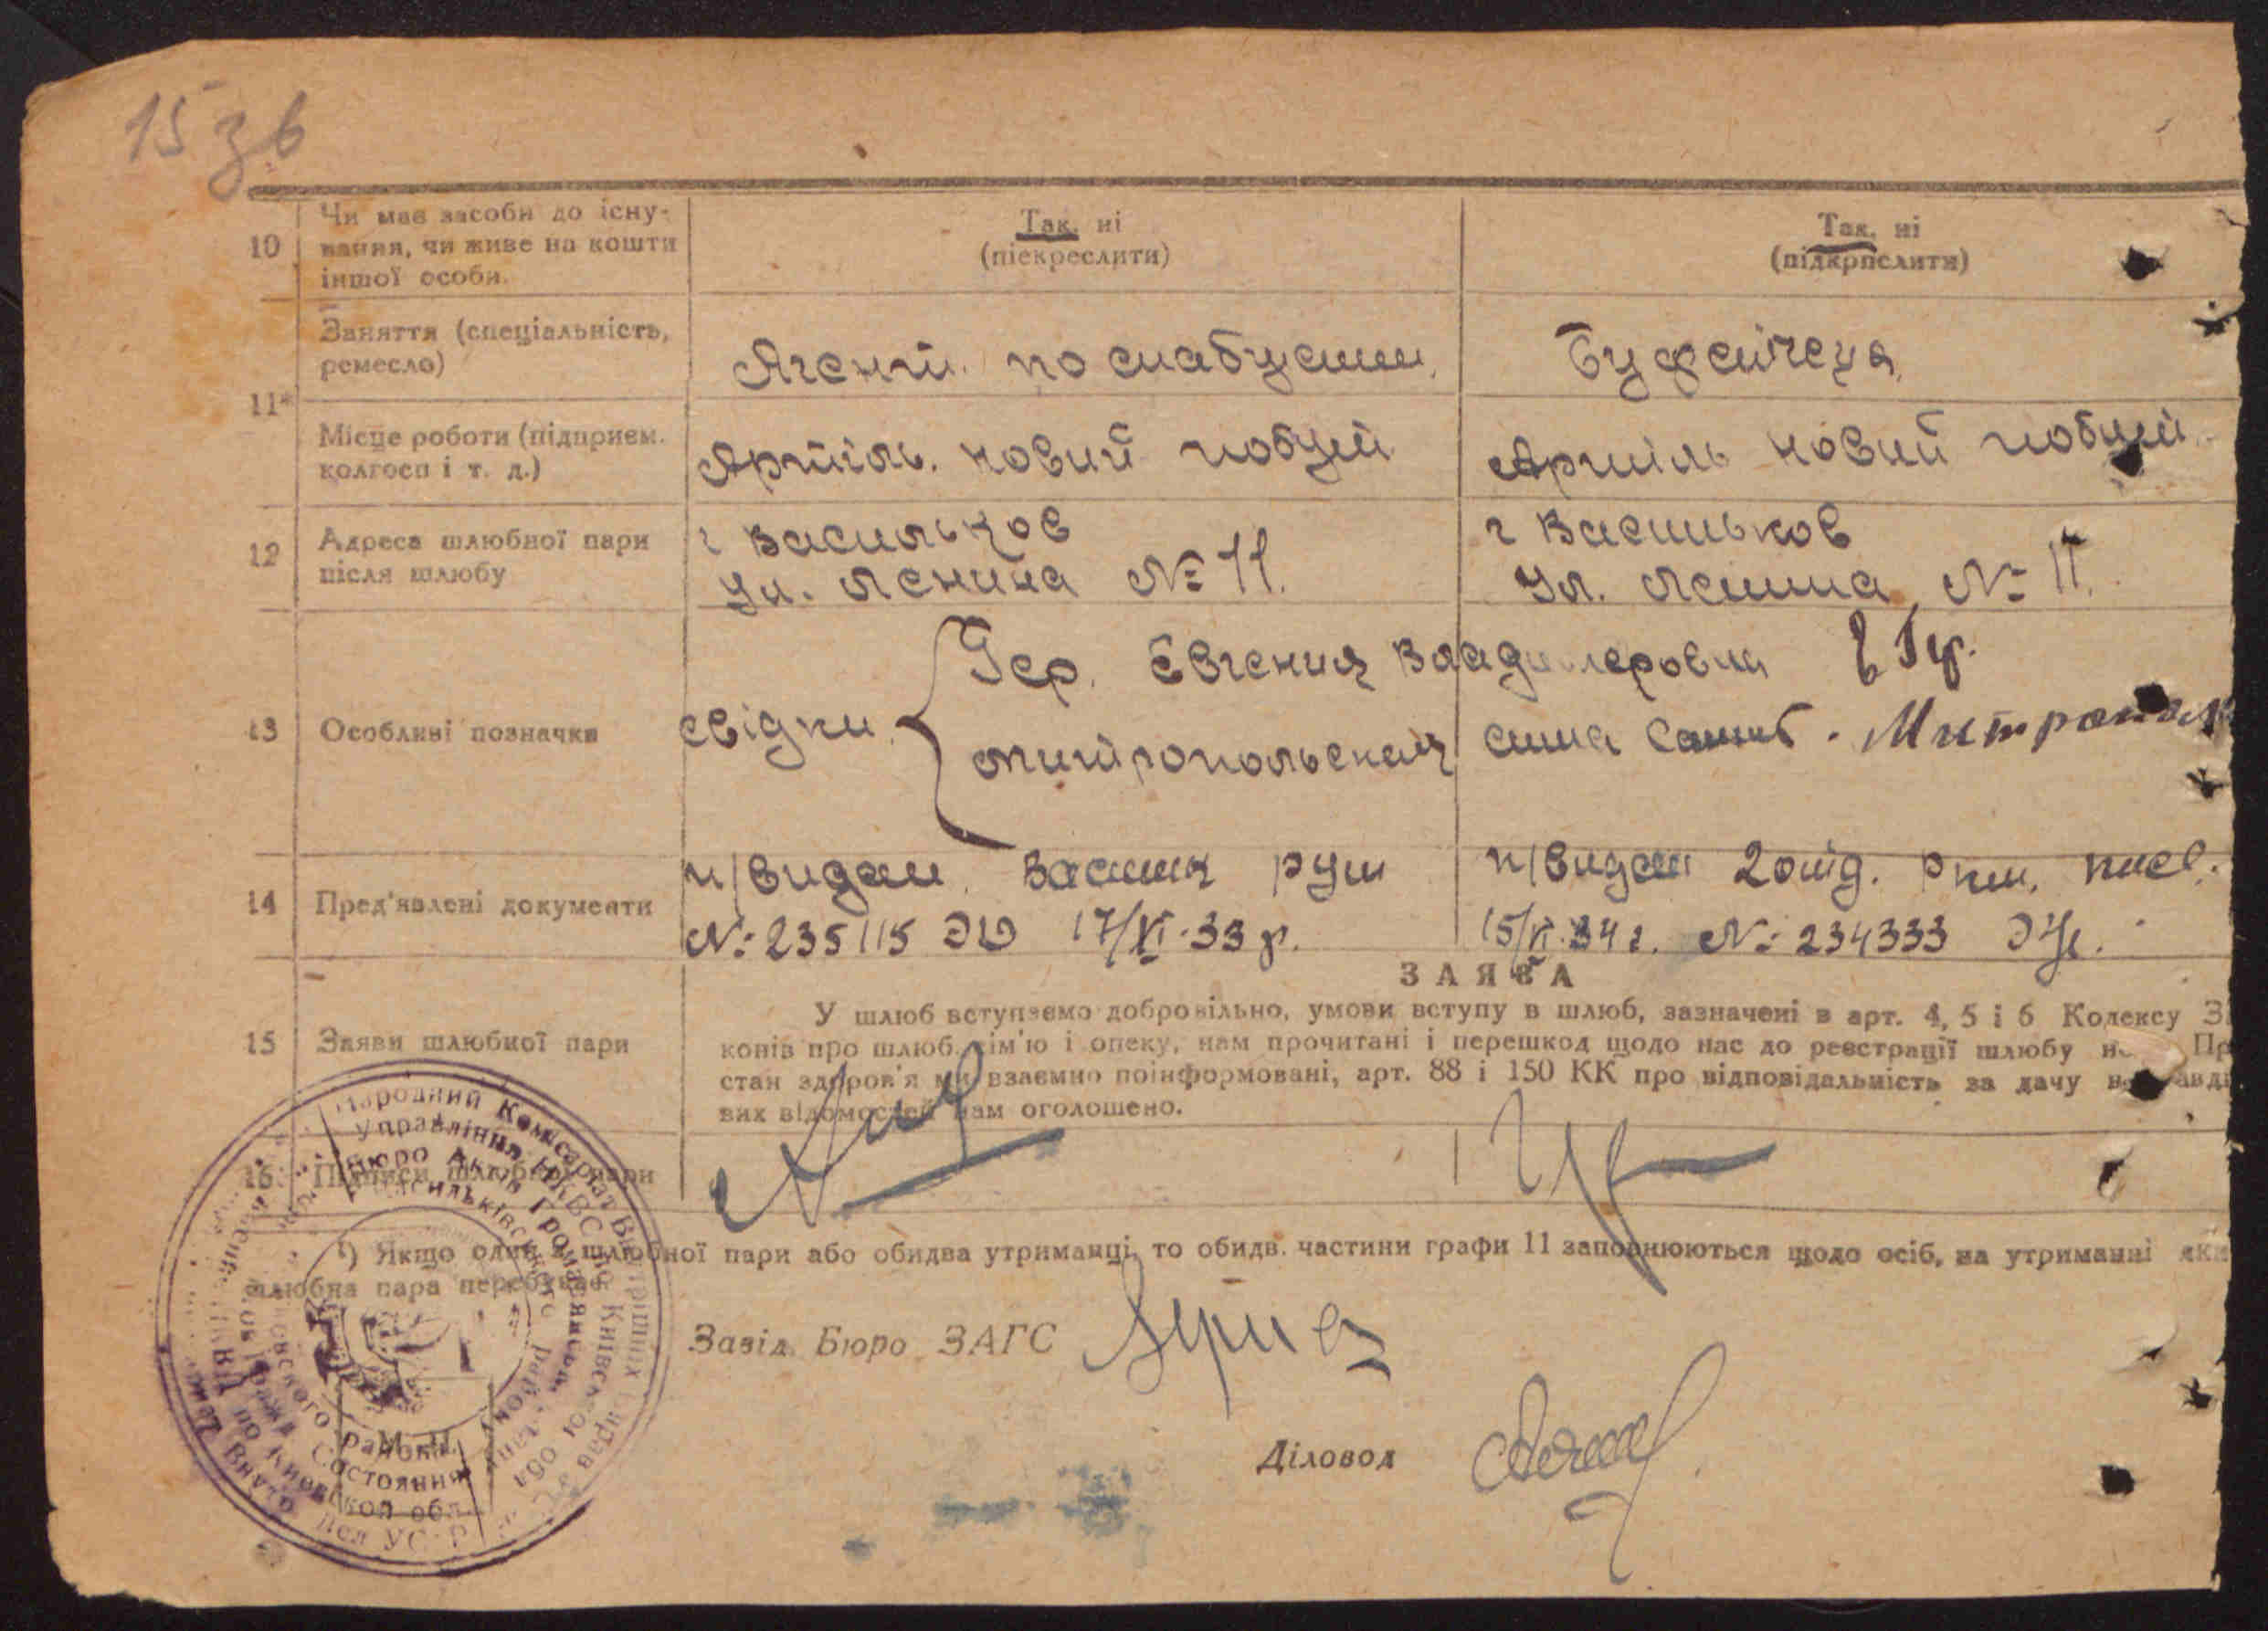 15 зв
10 Чи має засоби до існу-
вання, чи живе на кошти
іншої особи.
Так, ні
(піекреслити)
Так, ні
(підкрпслити)
11*
Заняття (спеціальність,
ремесло)
Агент по снабжению
Буфетчеця
Місце роботи (підприєм.
колгосп і т. д.)
Артіль. новий побут
Артіль новий побут
12 Адреса шлюбної пари
після шлюбу
г Васильков
Ул. Ленина № 11.
г Васильков
Ул. Ленина, № 11.
13 Особливі позначки
свідки
Гер. Евгения Владимеровна
Митропольская
14 Пред'явлені документи
п/видан
№ 235115 17/VI-33 р.
п/видан 2 отд. Ркм. Киев.
15/VI.34 г. № 234333
ЗАЯВА
15 Заяви шлюбної пари
У шлюб вступаємо добровільно, умови вступу в шлюб, зазначені в арт. 4, 5 і 6 Кодексу
конів про шлюб, сім'ю і опеку, нам прочитані і перешкод щодо нас до реєстрації шлюбу
стан здоров'я ми взаємно поінформовані, арт. 88 і 150 КК про відповідальність за дачу
вих відомостей нам оголошено.
16 Підписи шлюбної пари
¹) Якщо один з шлюбної пари або обидва утриманці, то обидв. частини графи 11 заповнюються щодо осіб, на утриманні яки
шлюбна пара перебуває.
Завід. Бюро ЗАГС
Діловод
Народний Комісаріат Внутрішніх Справ
Управління НКВС по Київській обл
Бюро Актів Громадянськ. стану
Васильківського району
М. П.
района
Состояния
по Киевской обл.